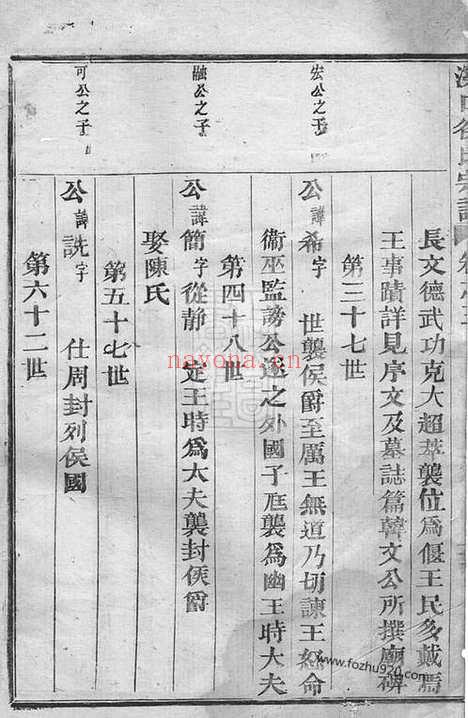 長文德武功克大超萃襲位為偃王民多戴焉
王事蹟詳見序文及墓誌篇韓文公所撰廟碑
第三十七世
宏公之子
公諱希字 世襲侯爵至厲王無道乃切諫王怒命
衞巫監謗公遂之外國子庭襲為幽王時大夫
第四十八世
融公之子
公諱簡字從静 定王時為大夫襲封侯爵
娶陳氏
第五十七世
可公之子
公諱詵字 仕周封列侯國
第六十二世
nayona.cn
www.fozhu920.com